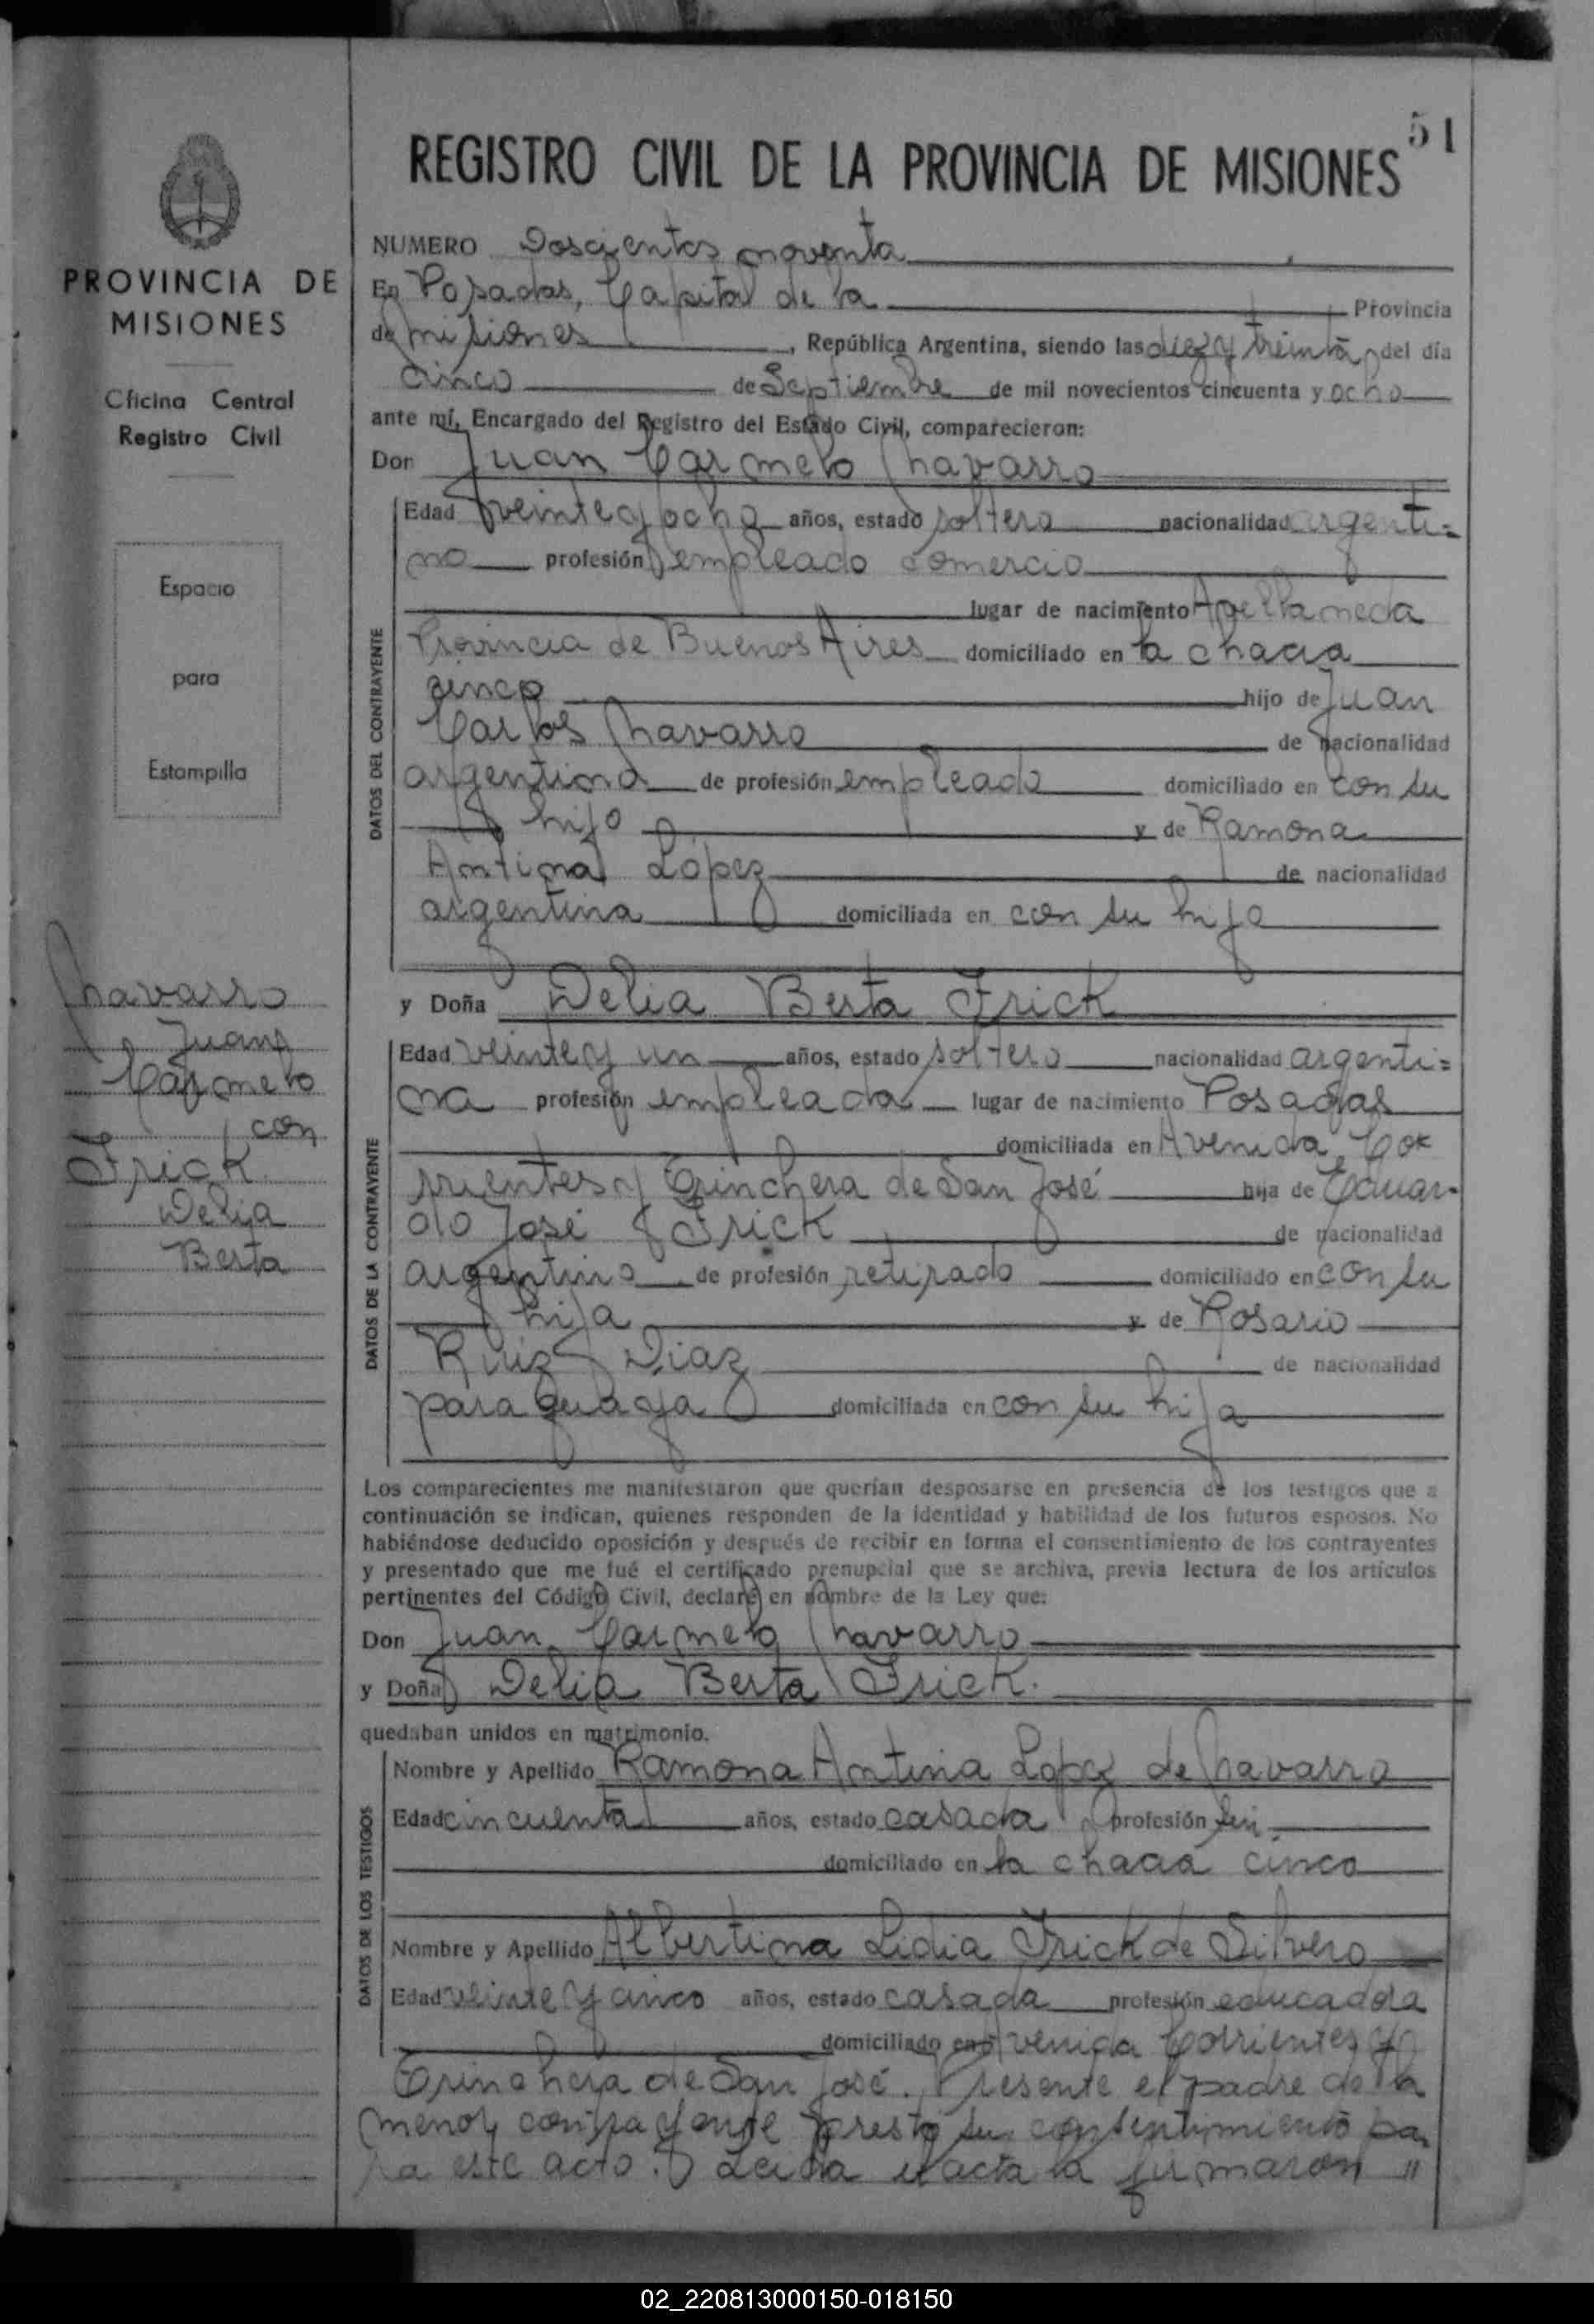 51
REGISTRO CIVIL DE LA PROVINCIA DE MISIONES
PROVINCIA DE
MISIONES
Oficina Central
Registro Civil
Espacio
para
Estampilla
Chavarro
Juan
Carmelo
con
Frick
Delia
Berta
NUMERO Doscientos noventa
En Posadas, Capital de la Provincia
de Misiones, República Argentina, siendo las diez y treinta del día
cinco de Septiembre de mil novecientos cincuenta y ocho
ante mí, Encargado del Registro del Estado Civil, comparecieron:
Don Juan Carmelo Chavarro
DATOS DEL CONTRAYENTE
Edad veinte y ocho años, estado soltero nacionalidad argenti=
no profesión empleado comercio
lugar de nacimiento Avellaneda
Provincia de Buenos Aires domiciliado en la chacra
cinco hijo de Juan
Carlos Chavarro de nacionalidad
argentina de profesión empleado domiciliado en con su
hijo y de Ramona
Antina López de nacionalidad
argentina domiciliada en con su hijo
y Doña Delia Berta Frick
DATOS DE LA CONTRAYENTE
Edad veinte y un años, estado soltera nacionalidad argenti=
na profesión empleada lugar de nacimiento Posadas
domiciliada en Avenida Co
rrientes y Trinchera de San José hija de Eduar-
do José Frick de nacionalidad
argentino de profesión retirado domiciliado en con su
hija y de Rosario
Ruiz Diaz de nacionalidad
paraguaya domiciliada en con su hija
Los comparecientes me manifestaron que querían desposarse en presencia de los testigos que a
continuación se indican, quienes responden de la identidad y habilidad de los futuros esposos. No
habiéndose deducido oposición y después de recibir en forma el consentimiento de los contrayentes
y presentado que me fué el certificado prenupcial que se archiva, previa lectura de los artículos
pertinentes del Código Civil, declaré en nombre de la Ley que:
Don Juan Carmelo Chavarro
y Doña Delia Berta Frick.
quedaban unidos en matrimonio.
DATOS DE LOS TESTIGOS
Nombre y Apellido Ramona Antina Lopez de Chavarro
Edad cincuenta años, estado casada profesión sin
domiciliado en la chacra cinco
Nombre y Apellido Albertina Lidia Frick de Silvero
Edad veinte y cinco años, estado casada profesión educadora
domiciliado en Avenida Corrientes y
Trinchera de San José. Presente el padre de la
menor contrayente prestó su consentimiento pa
ra este acto. Leida el acta la firmaron "
02_220813000150-018150